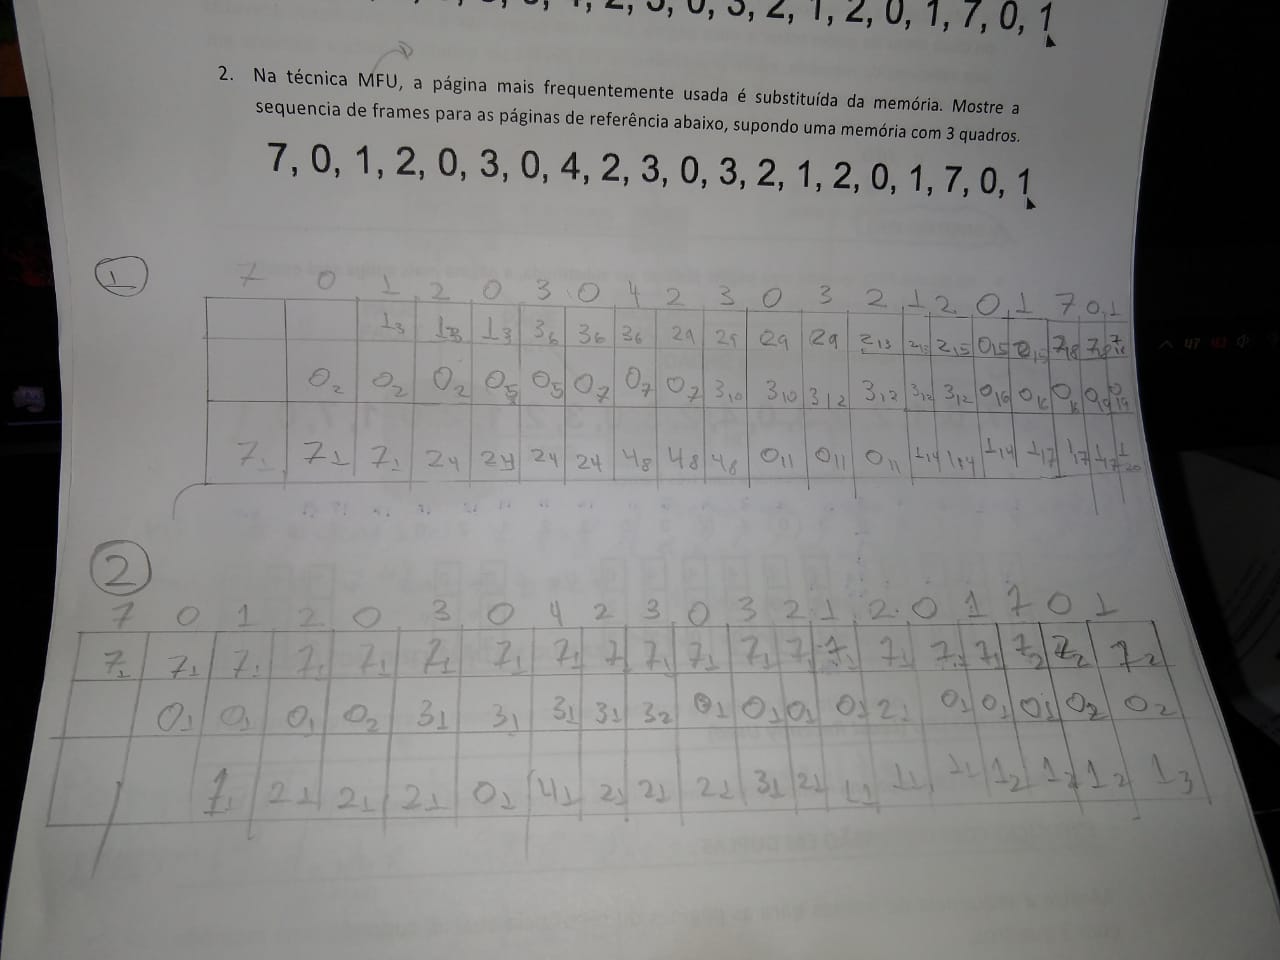 2, 3, 0, 3, 2, 1, 2, 0, 1, 7, 0, 1
2. Na técnica MFU, a página mais frequentemente usada é substituída da memória. Mostre a
sequencia de frames para as páginas de referência abaixo, supondo uma memória com 3 quadros.
7, 0, 1, 2, 0, 3, 0, 4, 2, 3, 0, 3, 2, 1, 2, 0, 1, 7, 0, 1
1
7 0 1 2 0 3 0 4 2 3 0 3 2 1 2 0 1 7 0 1
1₃ 1₃ 1₃ 3₆ 3₆ 3₆ 2₉ 2₉ 2₉ 2₉ 2₁₃ 2₁₃ 2₁₅ 0₁₅ 0₁₅ 7₁₈ 7₁₈ 7₁₈
0₂ 0₂ 0₂ 0₅ 0₅ 0₇ 0₇ 0₇ 3₁₀ 3₁₀ 3₁₂ 3₁₂ 3₁₂ 3₁₂ 0₁₆ 0₁₆ 0₁₆ 0₁₉ 0₁₉
7₁ 7₁ 7₁ 2₄ 2₄ 2₄ 2₄ 4₈ 4₈ 4₈ 0₁₁ 0₁₁ 0₁₁ 1₁₄ 1₁₄ 1₁₄ 1₁₇ 1₁₇ 1₁₇ 1₂₀
2
7 0 1 2 0 3 0 4 2 3 0 3 2 1 2 0 1 7 0 1
7₁ 7₁ 7₁ 7₁ 7₁ 7₁ 7₁ 7₁ 7 7₁ 7₁ 7₁ 7₁ 7₁ 7₁ 7₁ 7₁ 7₂ 7₂ 7₂
0₁ 0₁ 0₁ 0₂ 3₁ 3₁ 3₁ 3₁ 3₂ 0₁ 0₁ 0₁ 0₁ 2₁ 0₁ 0₁ 0₁ 0₂ 0₂
1₁ 2₁ 2₁ 2₁ 0₁ 4₁ 2₁ 2₁ 2₁ 3₁ 2₁ 1₁ 1₁ 1₁ 1₂ 1₂ 1₂ 1₃